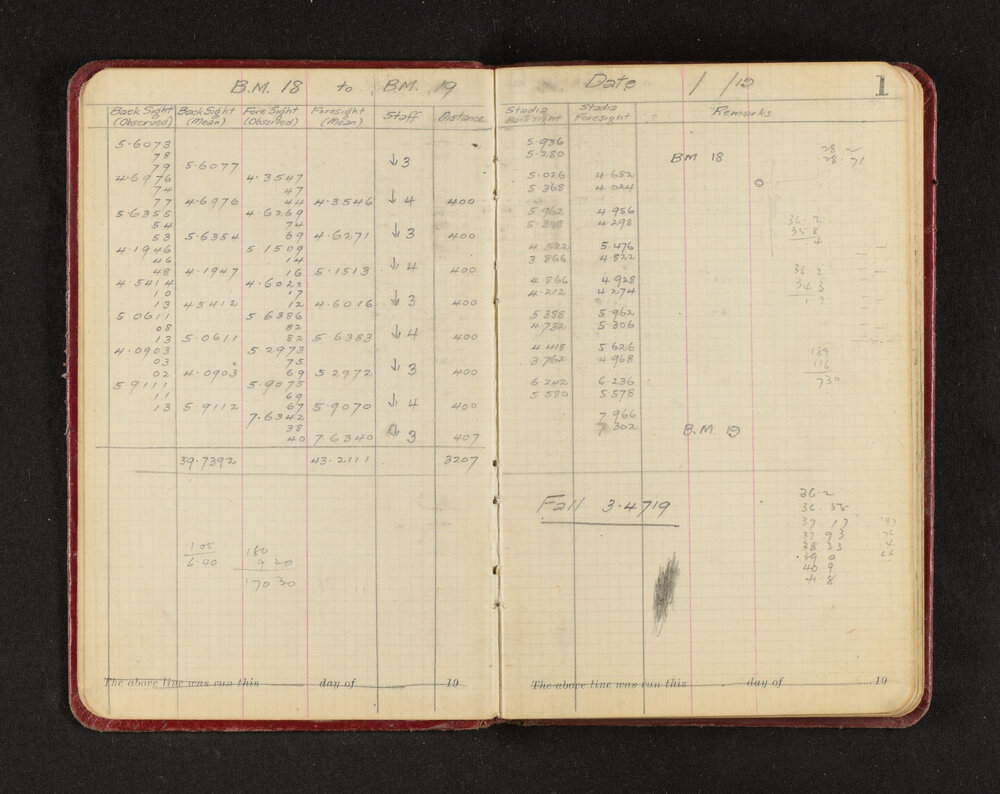 B.M. 18 to B.M. 19
Back Sight (Observed) Back Sight (Mean) Fore Sight (Observed) Foresight (Mean) Staff Distance
5.6073
78 ↓ 3
79 5.6077
4.6976 4.3547
74 47
77 4.6976 44 4.3546 ↓ 4 400
5.6355 4.6269
54 74
53 5.6354 69 4.6271 ↓ 3 400
4.1946 5.1509
46 14
48 4.1947 16 5.1513 ↓ 4 400
4.5414 4.6020
10 17
13 45412 12 4.6016 ↓ 3 400
5.0611 5.6386
08 82
13 5.0611 82 5 6383 ↓ 4 400
4.0903 5.2973
03 75
02 4.0903 69 5 2972 ↓ 3 400
5 9111 5.9075
11 69
13 5 9112 67 5.9070 ↓ 4 400
7.6342
38
40 7 6340 3 407
39.7392 43.2111 3207
1.05
6.40
180
9 30
170 30
The above line was run this day of 19
Date / /19
1
Stadia Back sight Stadia Foresight Remarks
5.936
5.280 BM 18
5.026 4.682
5 368 4.024
5.962 4.956
4.298
4 522 5.476
3 866 4.822
4.866 4.928
4.212 4.274
5 358 5.962
4.732 5 306
4.418 5 626
3 762 4.968
6.242 6.236
5 580 5.578
7.966
7 302 B.M. 19
Fall 3.4719
28.71
36.2
35 8
.4
36 2
34 3
1.9
189
116
730
36.2
36.55
37.17
37.93
38 33
39 0
40.9
The above line was run this day of 19